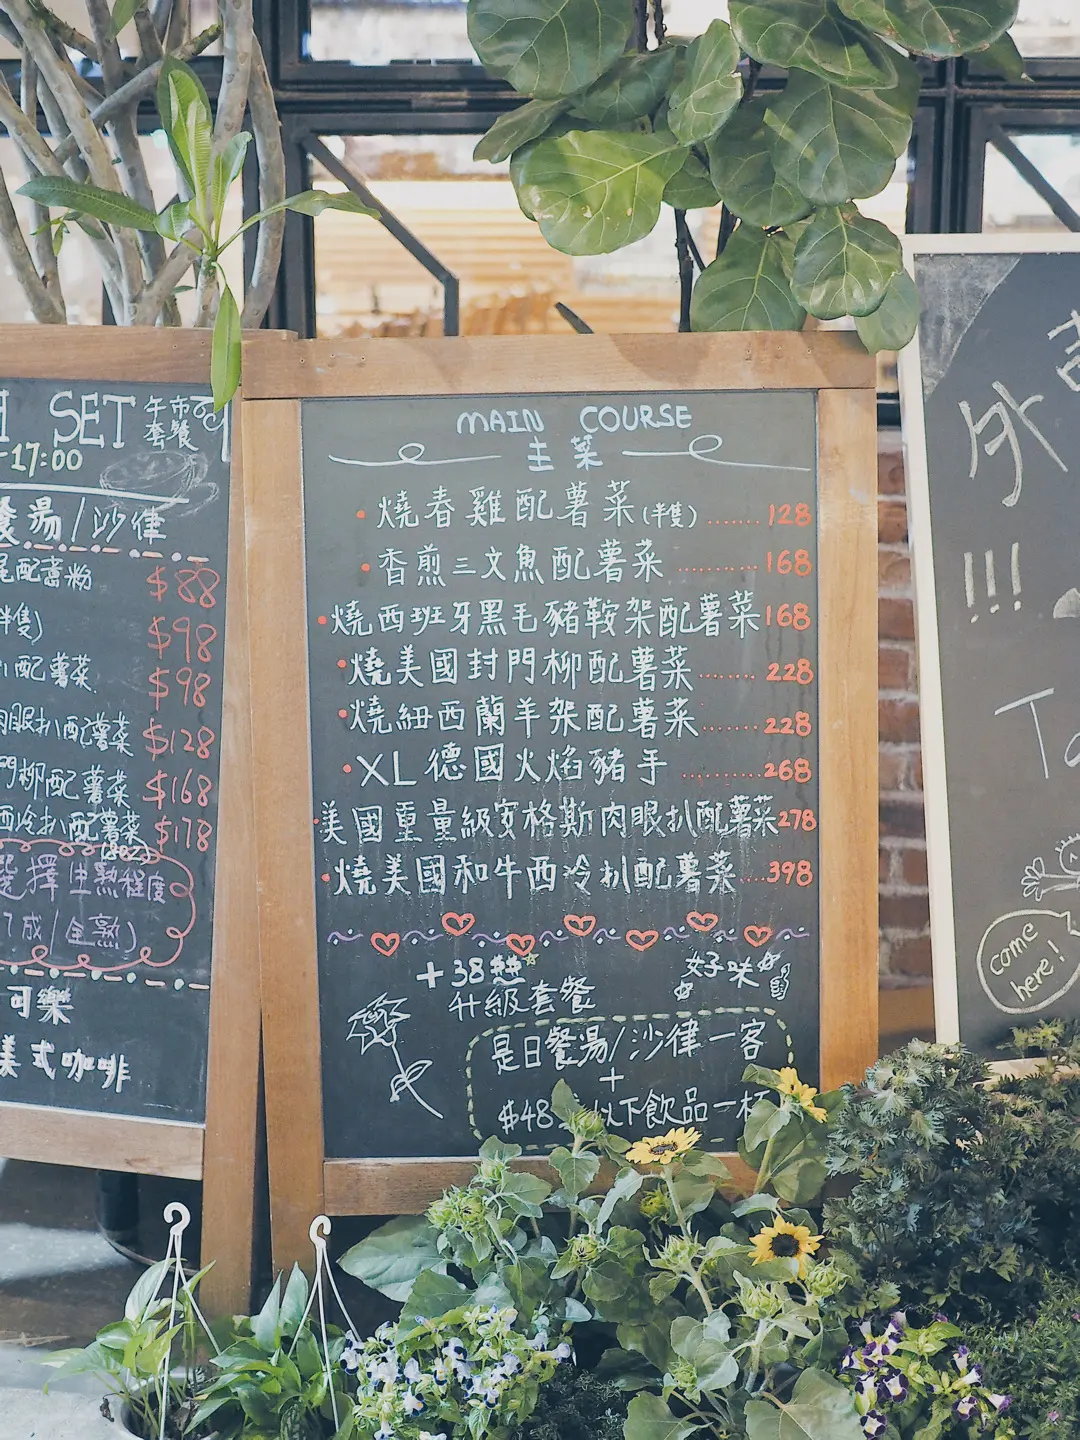 SET 午市套餐
-17:00
餐湯/沙律
配薯粉 $88
半隻) $98
配薯菜 $98
肉眼扒配薯菜 $128
門柳配薯菜 $168
西冷扒配薯菜 $178
選擇生熟程度
7成/全熟)
可樂
美式咖啡
MAIN COURSE
主菜
燒春雞配薯菜(半隻)......128
香煎三文魚配薯菜..........168
燒西班牙黑毛豬鞍架配薯菜168
燒美國封門柳配薯菜.......228
燒紐西蘭羊架配薯菜.......228
XL德國火焰豬手..........268
美國重量級安格斯肉眼扒配薯菜278
燒美國和牛西冷扒配薯菜...398
+38
升級套餐
好味
是日餐湯/沙律一客
+
$48 以下飲品一杯
外
!!!
come
here!